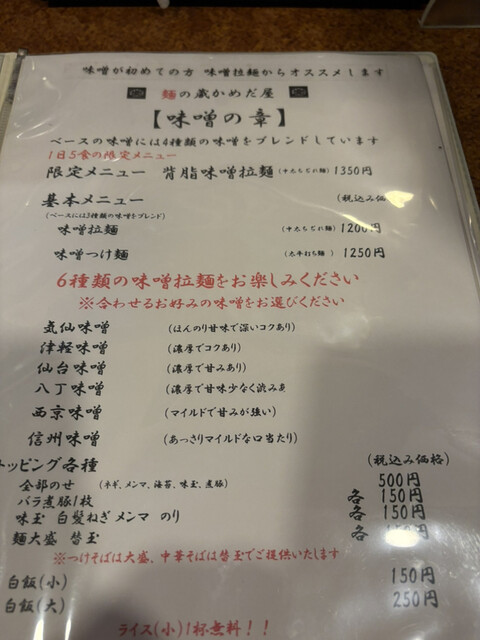 味噌が初めての方 味噌拉麺からオススメします
麺の蔵かめだ屋
【味噌の章】
ベースの味噌には4種類の味噌をブレンドしています
1日5食の限定メニュー
限定メニュー 背脂味噌拉麺 (中太ちぢれ麺) 1350円
基本メニュー (税込み価
(ベースには3種類の味噌をブレンド)
味噌拉麺 (中太ちぢれ麺) 1200円
味噌つけ麺 (太平打ち麺 ) 1250円
6種類の味噌拉麺をお楽しみください
※合わせるお好みの味噌をお選びください
気仙味噌 (ほんのり甘味で深いコクあり)
津軽味噌 (濃厚でコクあり)
仙台味噌 (濃厚で甘みあり)
八丁味噌 (濃厚で甘味少なく渋みあ
西京味噌 (マイルドで甘みが強い)
信州味噌 (あっさりマイルドな口当たり)
トッピング各種 (税込み価格)
全部のせ (ネギ、メンマ、海苔、味玉、煮豚) 500円
バラ煮豚1枚 各 150円
味玉 白髪ねぎ メンマ のり 各 150円
麺大盛 替玉 各 150円
※つけそばは大盛、中華そばは替玉でご提供いたします
白飯(小) 150円
白飯(大) 250円
ライス(小)1杯無料!!